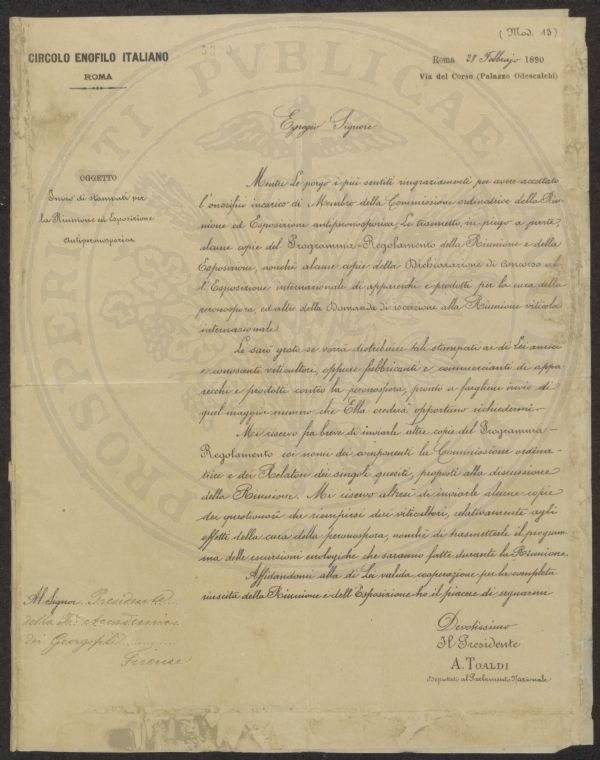 (Mod. 13)
CIRCOLO ENOFILO ITALIANO
ROMA
Roma 28 Febbrajo 1890
Via del Corso (Palazzo Odescalchi)
Egregio Signore
OGGETTO
Invio di stampati per
la Riunione ed Esposizione
Antiperonosporica
Mentre Le porgo i più sentiti ringraziamenti, per avere accettato
l'onorifico incarico di Membro della Commissione ordinatrice della Riu-
nione ed Esposizione antiperonosporica, Le trasmetto, in piego a parte,
alcune copie del Programma-Regolamento della Riunione e della
Esposizione, nonchè alcune copie della Dichiarazione di Concorso al-
l'Esposizione internazionale di apparecchi e prodotti per la cura della
peronospora, ed altre della Domanda di iscrizione alla Riunione viticola
internazionale.
Le sarò grato se vorrà distribuire tali stampati ai di Lei amici
e conoscenti viticultori, oppure fabbricanti e commercianti di appa-
recchi e prodotti contro la peronospora, pronto a fargliene invio di
quel maggior numero che Ella crederà opportuno richiedermi.-
Mi riservo fra breve di inviarle altre copie del Programma-
Regolamento coi nomi dei componenti la Commissione ordina-
trice e dei Relatori dei singoli quesiti, proposti alla discussione
della Riunione. Mi riservo altresì di inviarle alcune copie
dei questionari da riempirsi dai viticultori, relativamente agli
effetti della cura della peronospora, nonchè di trasmetterle il program-
ma delle escursioni enologiche che saranno fatte durante la Riunione.
Affidandomi alla di Lei valida cooperazione per la completa
riuscita della Riunione e dell'Esposizione ho il piacere di segnarmi
Devotissimo
Il Presidente
A. TOALDI
Deputato al Parlamento Nazionale
Al Signor Presidente
della R. Accademia
dei Georgofili
Firenze
PROSPERITATI PUBLICAE